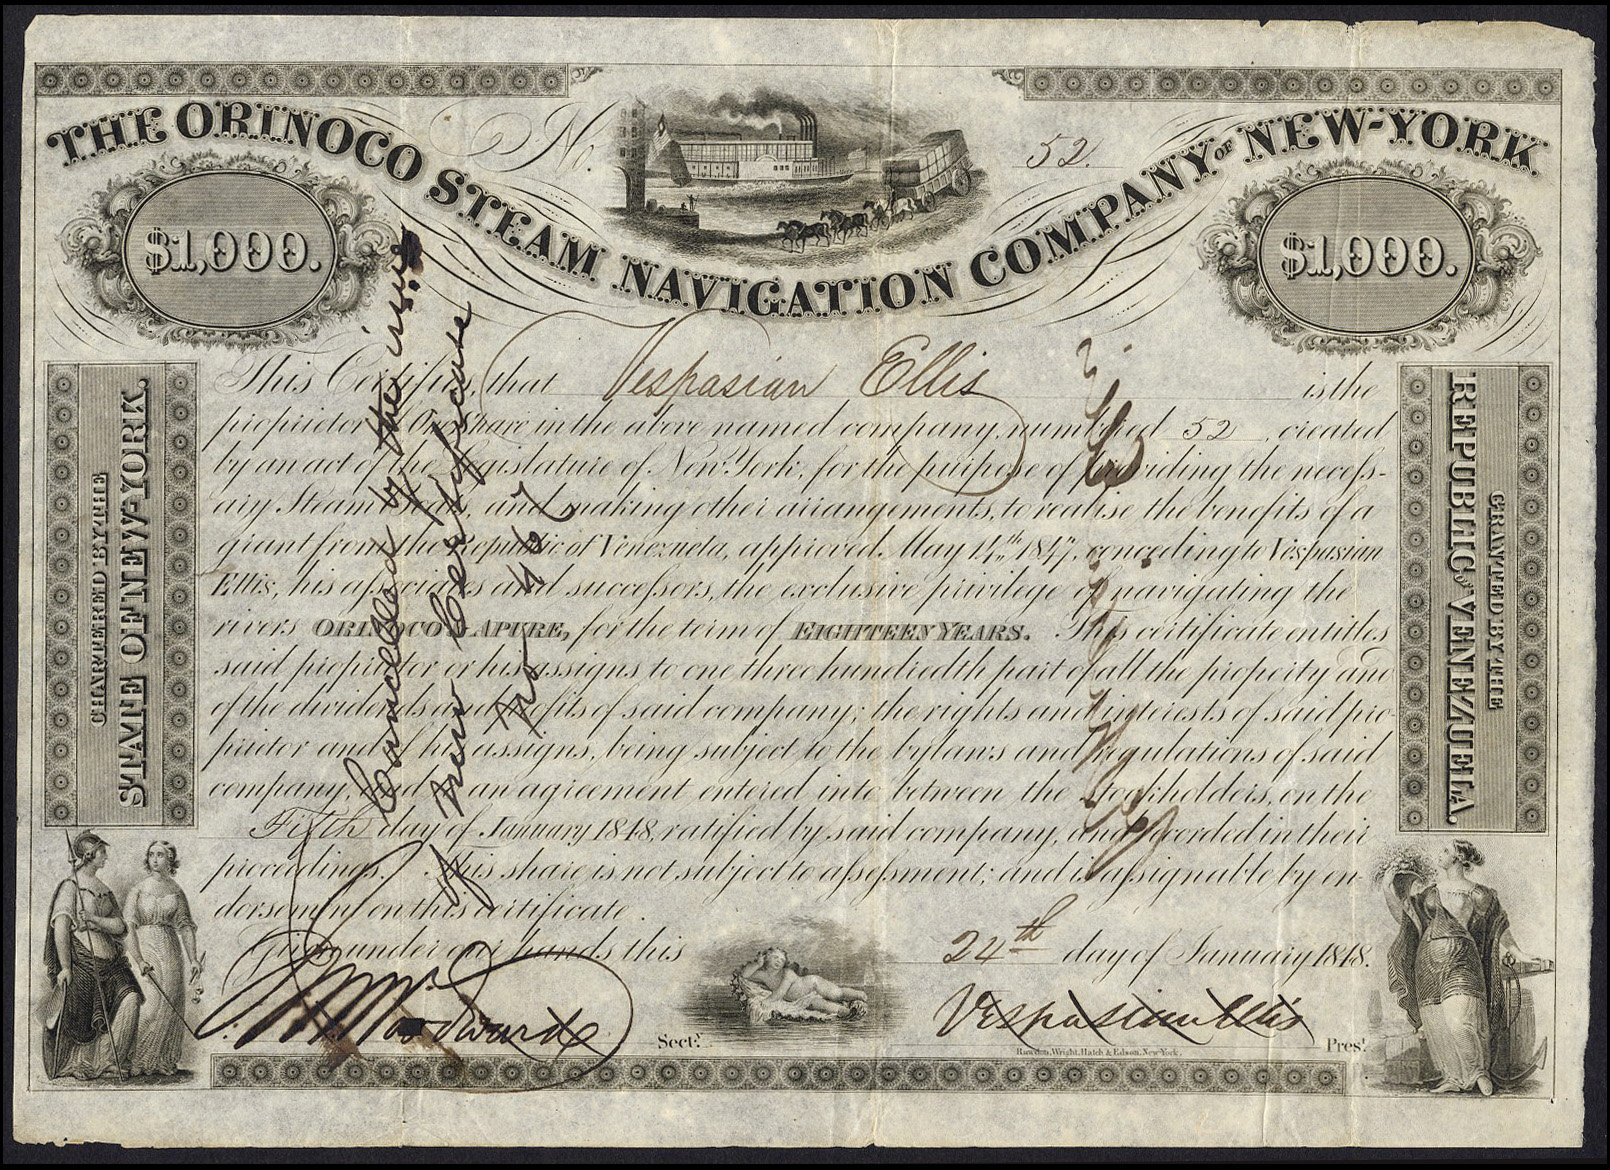 THE ORINOCO STEAM NAVIGATION COMPANY OF NEW-YORK
No. 52.
$1,000.
$1,000.
CHARTERED BY THE
STATE OF NEW-YORK.
GRANTED BY THE
REPUBLIC OF VENEZUELA.
This Certifies, that Vespasian Ellis is the
proprietor of One Share in the above named company, numbered 52, created
by an act of the Legislature of New York, for the purpose of providing the necess-
ary Steam Boats, and making other arrangements, to realise the benefits of a
grant from the Republic of Venezuela, approved May 14th 1847, conceding to Vespasian
Ellis, his associates and successors, the exclusive privilege of navigating the
rivers ORINOCO & APURE, for the term of EIGHTEEN YEARS. This certificate entitles
said proprietor or his assigns to one three hundredth part of all the property and
of the dividends and profits of said company; the rights and interests of said pro-
prietor and of his assigns, being subject to the bylaws and regulations of said
company, and to an agreement entered into between the Stockholders, on the
Fifth day of January 1848, ratified by said company, and recorded in their
proceedings. This share is not subject to assessment; and is assignable by en-
dorsement on this certificate.
Given under our hands this 24th day of January 1848.
Woodward Secty.
Vespasian Ellis Prest.
Rawdon, Wright, Hatch & Edson, New-York.
Cancelled by the issue
of new Certificate
No 467